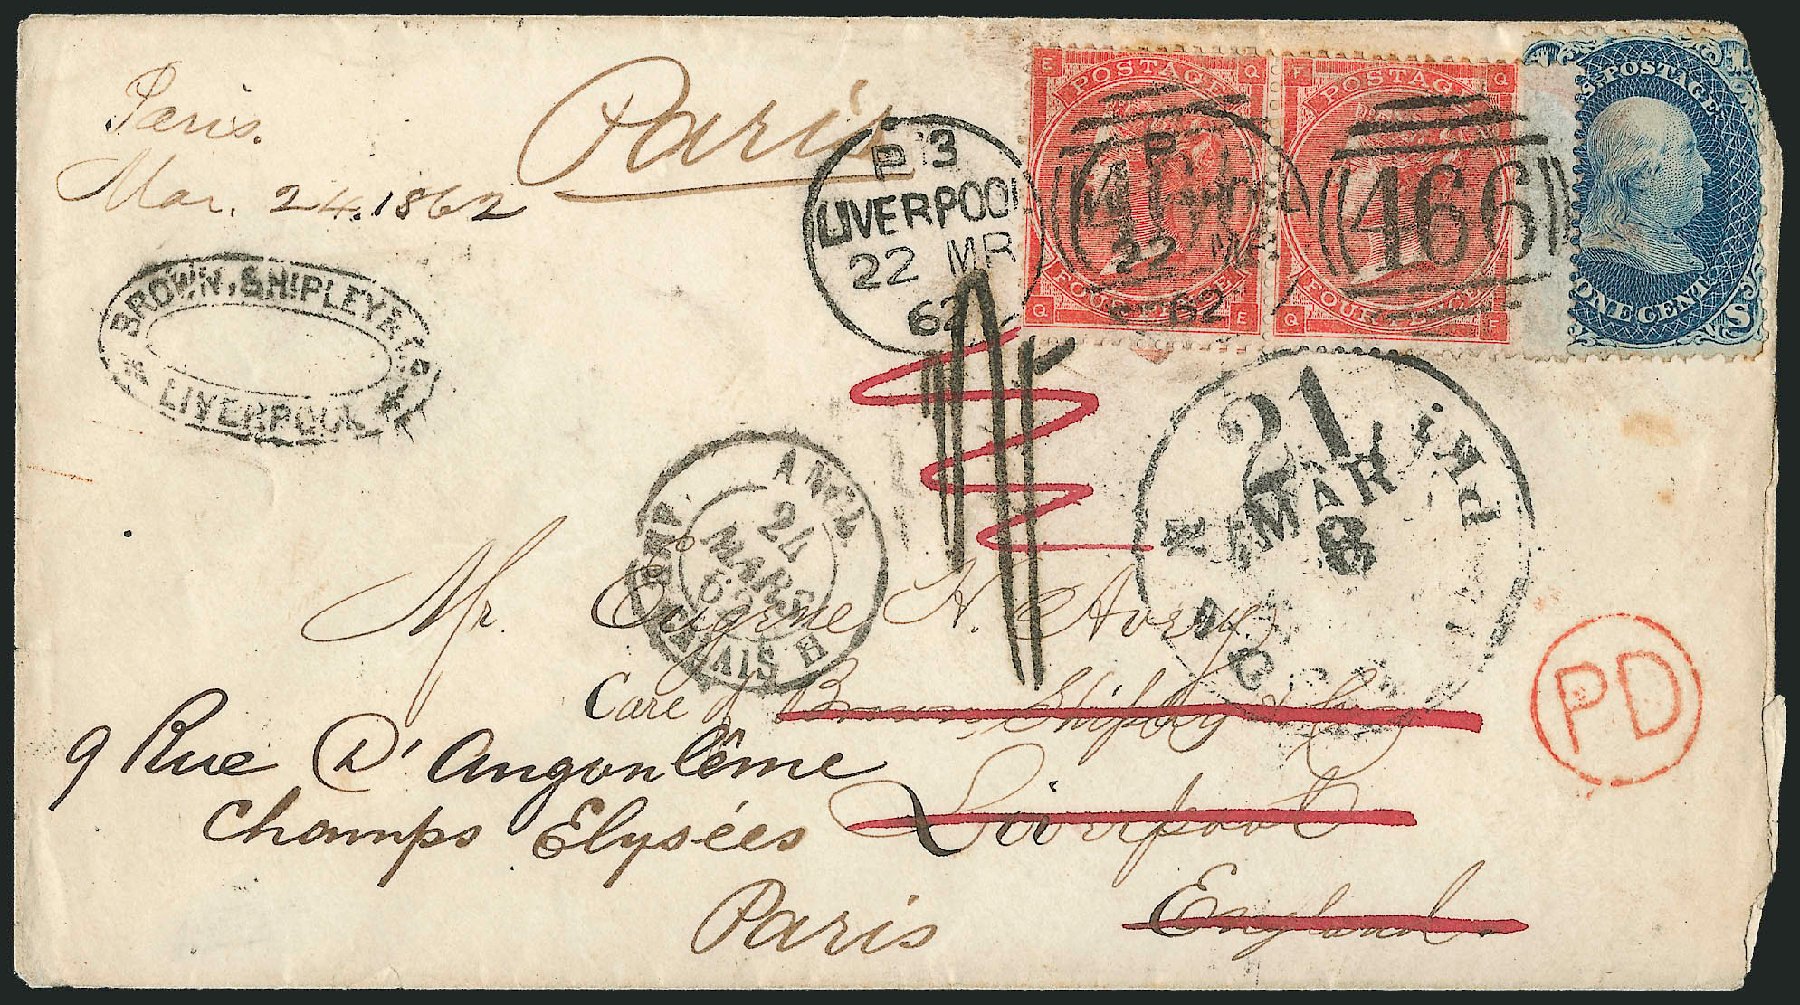 Paris.
Mar. 24. 1862
Paris
BROWN, SHIPLEY & Co
LIVERPOOL
B 13
LIVERPOOL
22 MR
62
E Q
POSTAGE
FOUR PENCE
Q E
466
22 MR
62
F Q
POSTAGE
FOUR PENCE
Q F
466
U.S. POSTAGE
ONE CENT
S
21
MAR
8
ANGL.
24
MARS
62
AMB. CALAIS H
PD
Mr. Eugene N. Avery
Care of Brown Shipley & Co
9 Rue D'Angoulême
Liverpool
Champs Elysées
England.
Paris